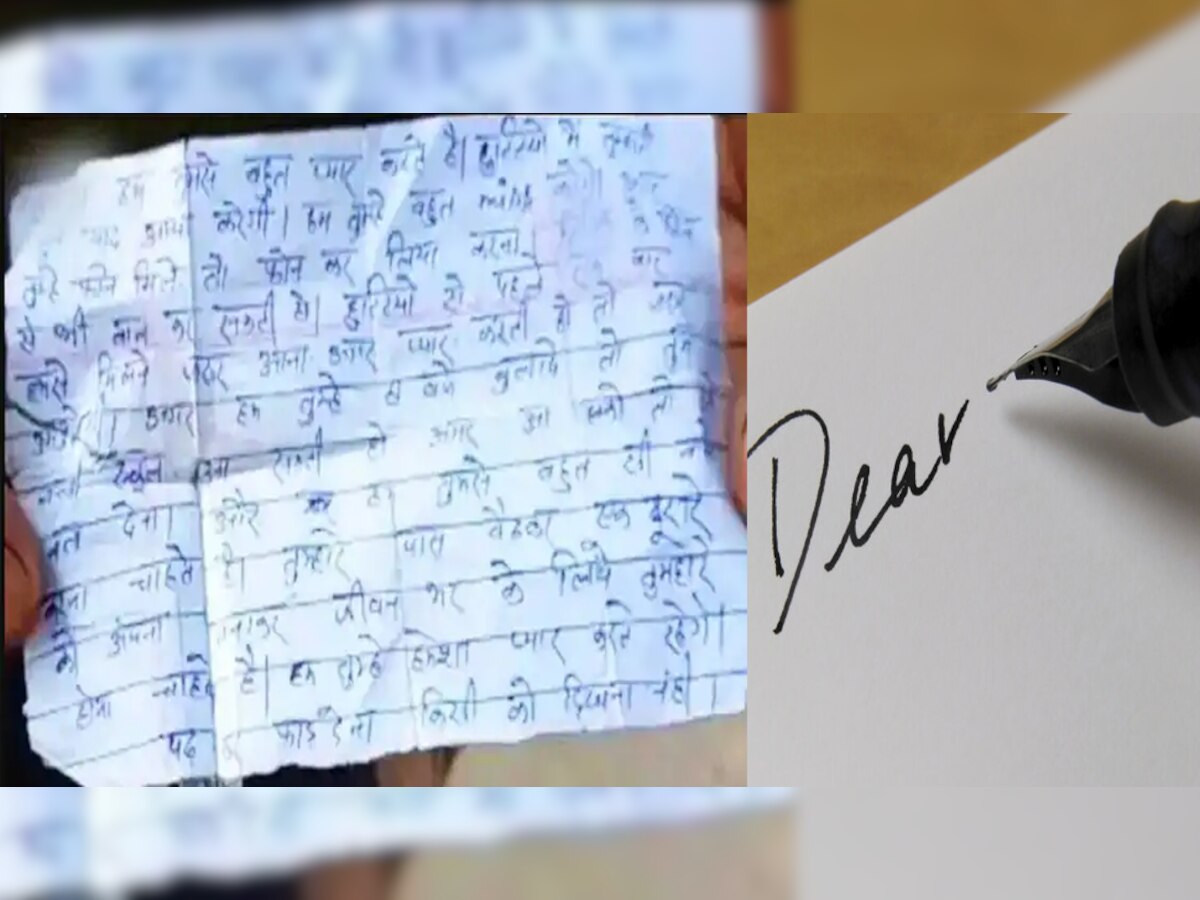 हम तुमसे बहुत प्यार करते है। छुट्टियो मे तुम्हारी
याद आया करेगी। हम तुम्हे बहुत करेगे।
तुम्हे फोन मिले तो फोन कर लिया करना।
से भी बात कर सकती हो। छुट्टियो से पहले एक बार
हमसे मिलने जरूर आना अगर प्यार करती हो तो
अगर हम तुम्हे 8 बजे बुलादे तो तुम
स्कूल आ सकती हो अगर आ सको तो
बता देना। और तुमसे बहुत सी बाते
करना चाहते है। तुम्हारे पास बैठकर एक दूसरे
को अपना बनाकर जीवन भर के लिये तुमहारे
होना चाहते है। हम तुम्हे हमेशा प्यार करते रहेगे।
पढ कर फाड देना किसी को दिखाना नही।
Dear